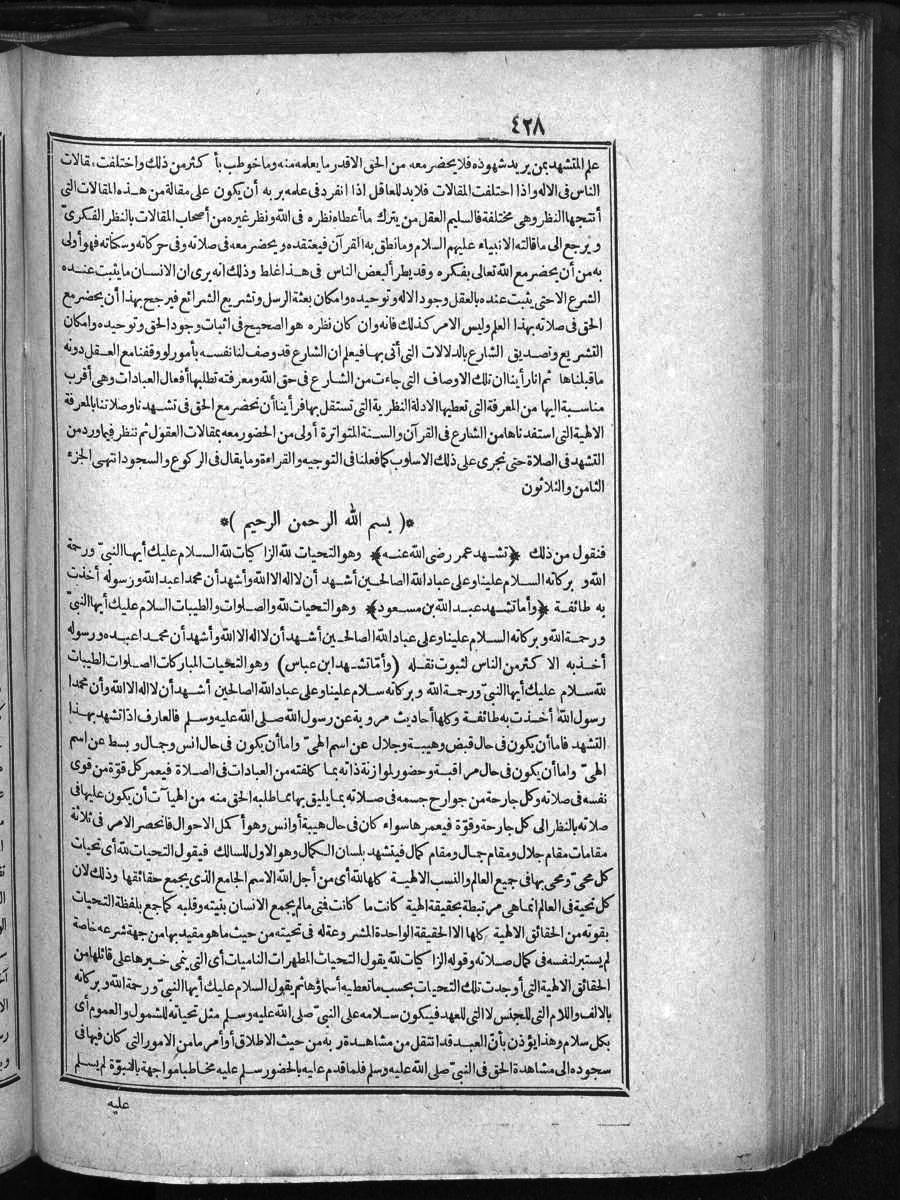 ٤٢٨
علم المتشهد بمن يريد شهوده فلا يحضر معه من الحق الا قدر ما يعلمه منه وما خوطب بأكثر من ذلك واختلفت مقالات
الناس فى الاله واذا اختلفت المقالات فلا بد للعاقل اذا انفرد فى علمه بربه أن يكون على مقالة من هذه المقالات التى
أنتجها النظر وهى مختلفة فالسليم العقل من يترك ما أعطاه نظره فى الله ونظر غيره من أصحاب المقالات بالنظر الفكرىّ
ويرجع الى ما قالته الانبياء عليهم السلام وما نطق به القرآن فيعتقده ويحضر معه فى صلاته وفى حركاته وسكناته فهو أولى
به من أن يحضر مع الله تعالى بفكره وقد يطرأ لبعض الناس فى هذا غلط وذلك انه يرى ان الانسان ما يثبت عنده
الشرع الا حتى يثبت عنده بالعقل وجود الاله وتوحيده وامكان بعثة الرسل وتشريع الشرائع فيرجح بهذا أن يحضر مع
الحق فى صلاته بهذا العلم وليس الامر كذلك فانه وان كان نظره هو الصحيح فى اثبات وجود الحق وتوحيده وامكان
التشريع وتصديق الشارع بالدلالات التى أتى بها فيعلم ان الشارع قد وصف لنا نفسه بأمور لو وقفنا مع العقل دونه
ما قبلناها ثم انا رأينا ان تلك الاوصاف التى جاءت من الشارع فى حق الله ومعرفته تطلبها أفعال العبادات وهى أقرب
مناسبة اليها من المعرفة التى تعطيها الادلة النظرية التى تستقل بها فرأينا أن نحضر مع الحق فى تشهدنا وصلاتنا بالمعرفة
الالهية التى استفدناها من الشارع فى القرآن والسنة المتواترة أولى من الحضور معه بمقالات العقول ثم ننظر فيما ورد من
التشهد فى الصلاة حتى نجرى على ذلك الاسلوب كما فعلنا فى التوجيه والقراءة وما يقال فى الركوع والسجود انتهى الجزء
الثامن والثلاثون
*( بسم الله الرحمن الرحيم )*
فنقول من ذلك ﴿تشهد عمر رضى الله عنه﴾ وهو التحيات لله الزاكيات لله السلام عليك أيها النبىّ ورحمة
الله وبركاته السلام علينا وعلى عباد الله الصالحين أشهد أن لا اله الا الله وأشهد أن محمدا عبد الله ورسوله أخذت
به طائفة ﴿وأما تشهد عبد الله بن مسعود﴾ وهو التحيات لله والصلوات والطيبات السلام عليك أيها النبىّ
ورحمة الله وبركاته السلام علينا وعلى عباد الله الصالحين أشهد أن لا اله الا الله وأشهد أن محمدا عبده ورسوله
أخذ به الاكثر من الناس لثبوت نقله (وأمّا تشهد ابن عباس) وهو التحيات المباركات الصلوات الطيبات
لله سلام عليك أيها النبىّ ورحمة الله وبركاته سلام علينا وعلى عباد الله الصالحين أشهد أن لا اله الا الله وأن محمدا
رسول الله أخذت به طائفة وكلها أحاديث مروية عن رسول الله صلى الله عليه وسلم فالعارف اذا تشهد بهذا
التشهد فاما أن يكون فى حال قبض وهيبة وجلال عن اسم الهىّ واما أن يكون فى حال انس وجمال وبسط عن اسم
الهىّ واما أن يكون فى حال مراقبة وحضور لموازنة ذاته بما كلفته من العبادات فى الصلاة فيعمر كل قوّة من قوى
نفسه فى صلاته وكل جارحة من جوارح جسمه فى صلاته بما يليق بها مما طلبه الحق منه من الهيآت أن يكون عليها فى
صلاته بالنظر الى كل جارحة وقوّة فيعمرها سواء كان فى حال هيبة أو انس وهو أكمل الاحوال فانحصر الامر فى ثلاثة
مقامات مقام جلال ومقام جمال ومقام كمال فيتشهد بلسان الكمال وهو الاول للسالك فيقول التحيات لله أى تحيات
كل محيىّ ومحي بها فى جميع العالم والنسب الالهية كلها لله أى من أجل الله الاسم الجامع الذى يجمع حقائقها وذلك لان
كل تحية فى العالم انما هى مرتبطة بحقيقة الهية كانت ما كانت فتى ما لم يجمع الانسان بنيته وقلبه كما جمع بلفظة التحيات
بقوته من الحقائق الالهية كلها الا الحقيقة الواحدة المشروعة له فى تحيته من حيث ما هو مقيد بها من جهة شرعه خاصة
لم يستبر لنفسه فى كمال صلاته وقوله الزاكيات لله يقول التحيات المطهرات الناميات أى التى ينمى خيرها على قائلها من
الحقائق الالهية التى أوجدت تلك التحيات بحسب ما تعطيه أسماؤها ثم يقول السلام عليك أيها النبىّ ورحمة الله وبركاته
بالالف واللام التى للجنس لا التى للعهد فيكون سلامه على النبىّ صلى الله عليه وسلم مثل تحياته للشمول والعموم أى
بكل سلام وهذا يؤذن بأنّ العبد قد انتقل من مشاهدة ربه من حيث الاطلاق أو أمر ما من الامور التى كان فيها فى
سجوده الى مشاهدة الحق فى النبىّ صلى الله عليه وسلم فلما قدم عليه بالحضور سلم عليه مخاطبا مواجهة بالنبوّة لم يسلم
عليه